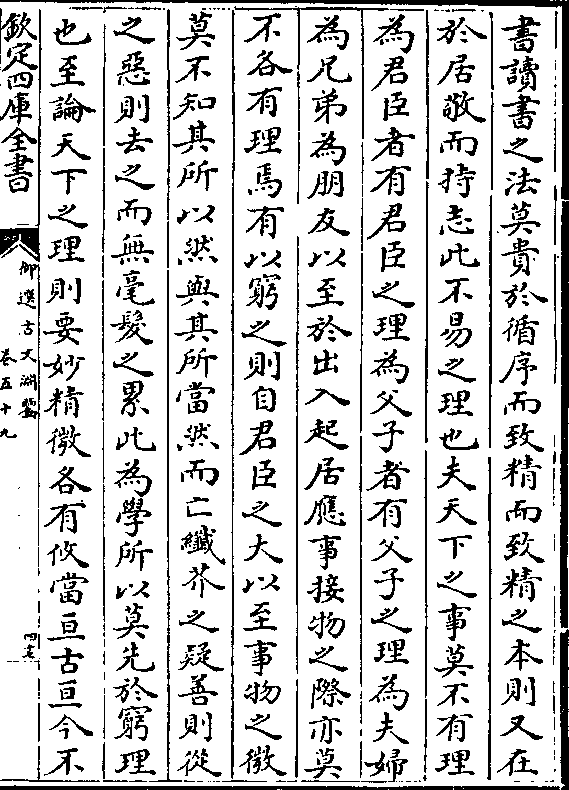 書讀書之法莫貴於循序而致精而致精之本則又在
於居敬而持志此不易之理也夫天下之事莫不有理
為君臣者有君臣之理為父子者有父子之理為夫婦
為兄弟為朋友以至於出入起居應事接物之際亦莫
不各有理焉有以窮之則自君臣之大以至事物之微
莫不知其所以然與其所當然而亡纖芥之疑善則從
之惡則去之而無毫髮之累此為學所以莫先於窮理
也至論天下之理則要妙精微各有攸當亘古亘今不
欽定四庫全書
御選古文淵鑒
卷五十九